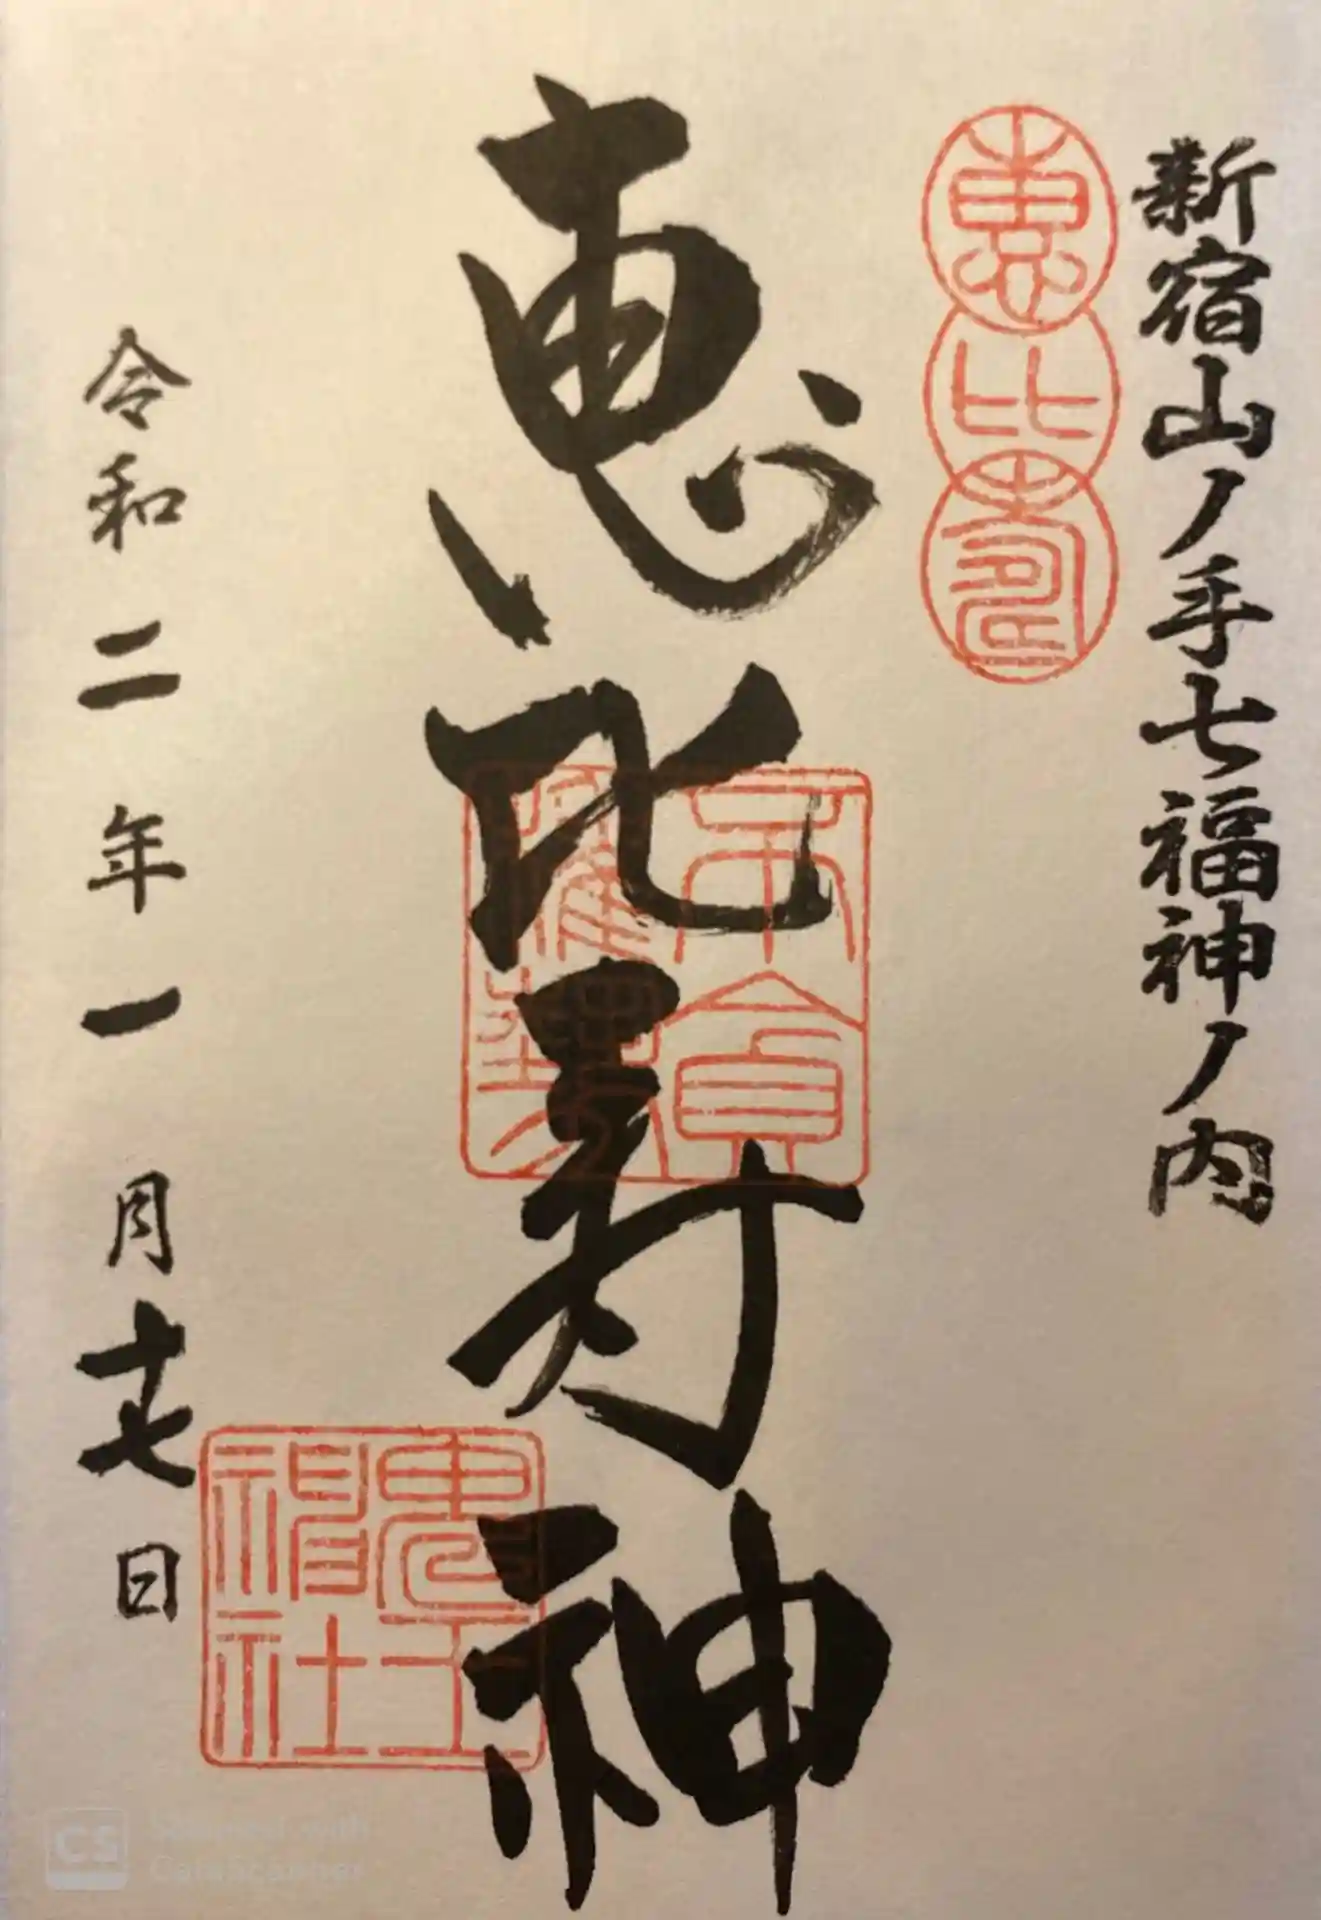 新宿山ノ手七福神ノ内
恵比寿
恵比寿神
鬼王
神社
令和二年一月十七日
CS Scanned with
CamScanner